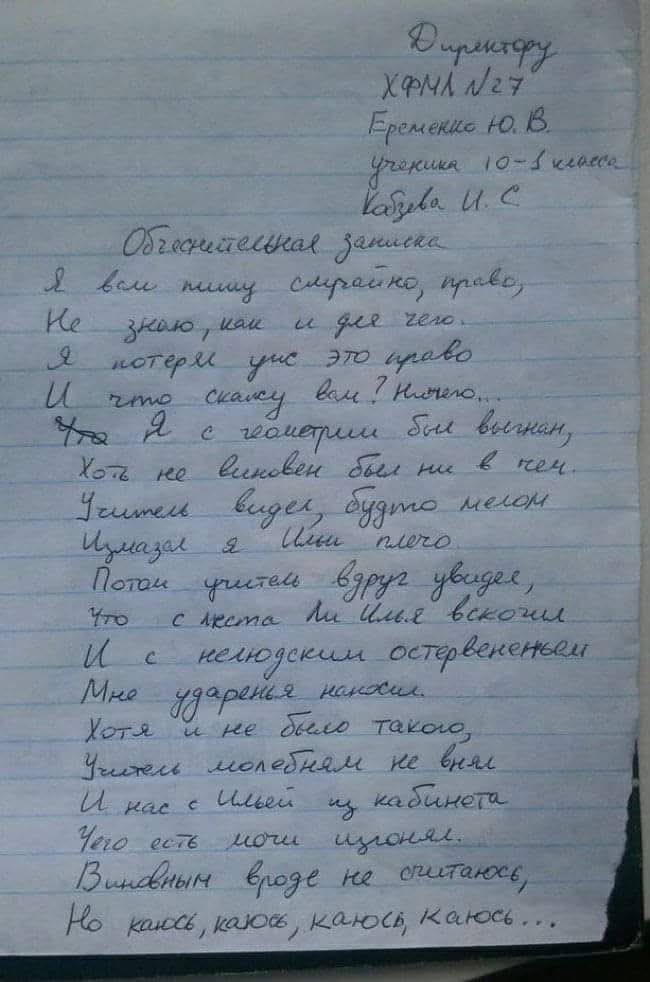 Директору
ХФМЛ №27
Еременко Ю. В.
ученика 10-1 класса
Кобзева И. С.
Объеснительная записка
Я вам пишу случайно, право,
Не знаю, как и для чего.
Я потерял уже это право
И что скажу вам? Ничего...
Что Я с геометрии был выгнан,
Хоть не виновен был ни в чем.
Учитель видел, будто мелом
Измазал я Ильи плечо.
Потом учитель вдруг увидел,
Что с места Ли Илья вскочил
И с нелюдским остервененьем
Мне ударенья наносил.
Хотя и не было такого,
Учитель молебням не внял
И нас с Ильей из кабинета
Чего есть мочи изгонял.
Виновным вроде не считаюсь,
Но каюсь, каюсь, каюсь, каюсь...